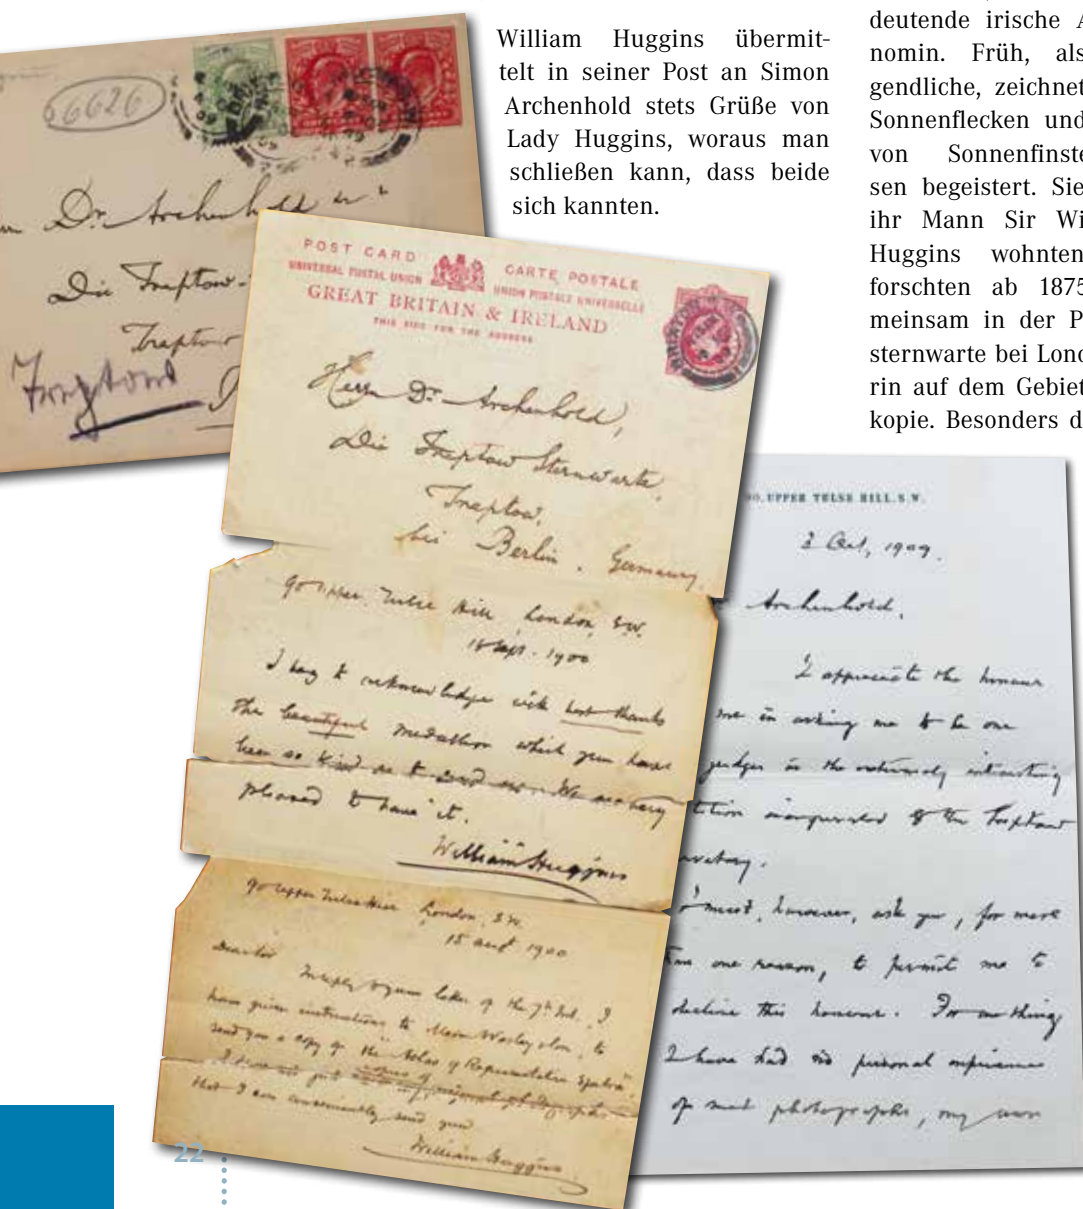 William Huggins übermit-
telt in seiner Post an Simon
Archenhold stets Grüße von
Lady Huggins, woraus man
schließen kann, dass beide
sich kannten.
deutende irische A
nomin. Früh, als
gendliche, zeichnet
Sonnenflecken und
von Sonnenfinste
sen begeistert. Sie
ihr Mann Sir Wi
Huggins wohnten
forschten ab 1875
meinsam in der P
sternwarte bei Lond
rin auf dem Gebiet
kopie. Besonders d
56626
Dr. Archenhold
Die Treptow-
Treptow
Treptow
POST CARD CARTE POSTALE
UNIVERSAL POSTAL UNION UNION POSTALE UNIVERSELLE
GREAT BRITAIN & IRELAND
THIS SIDE FOR THE ADDRESS
Herrn Dr. Archenhold,
Die Treptow Sternwarte,
Treptow,
bei Berlin. Germany.
90 Upper Tulse Hill, London, S.W.
Sept. 1900
I beg to acknowledge with best thanks
the beautiful medallion which you have
been so kind as to send us. We are very
pleased to have it.
William Huggins
90 Upper Tulse Hill, London, S.W.
15 Augt 1900
Dear Sir
In reply to your letter of the 7th Inst., I
have given instructions to Messrs Wesley & Son, to
send you a copy of the "Atlas of Representative Spectra"
I have not just copies of original photographs
that I can conveniently send you
William Huggins
90, UPPER TULSE HILL, S.W.
2 Oct, 1909.
Archenhold,
I appreciate the honour
me in asking me to be one
judges in the extremely interesting
tition inaugurated by the Treptow
ervatory.
I must, however, ask you, for more
than one reason, to permit me to
decline this honour. For one thing
I have had no personal experience
of such photographs, my own
22